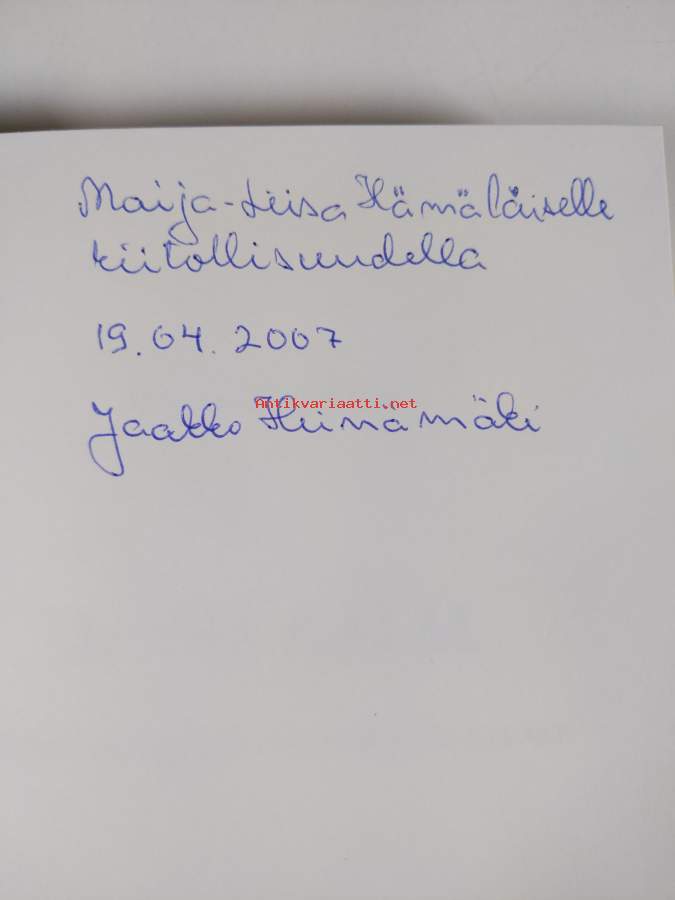 Maija-Liisa Hämäläiselle
kiitollisuudella
19.04.2007
Antikvariaatti.net
Jaakko Heinämäki